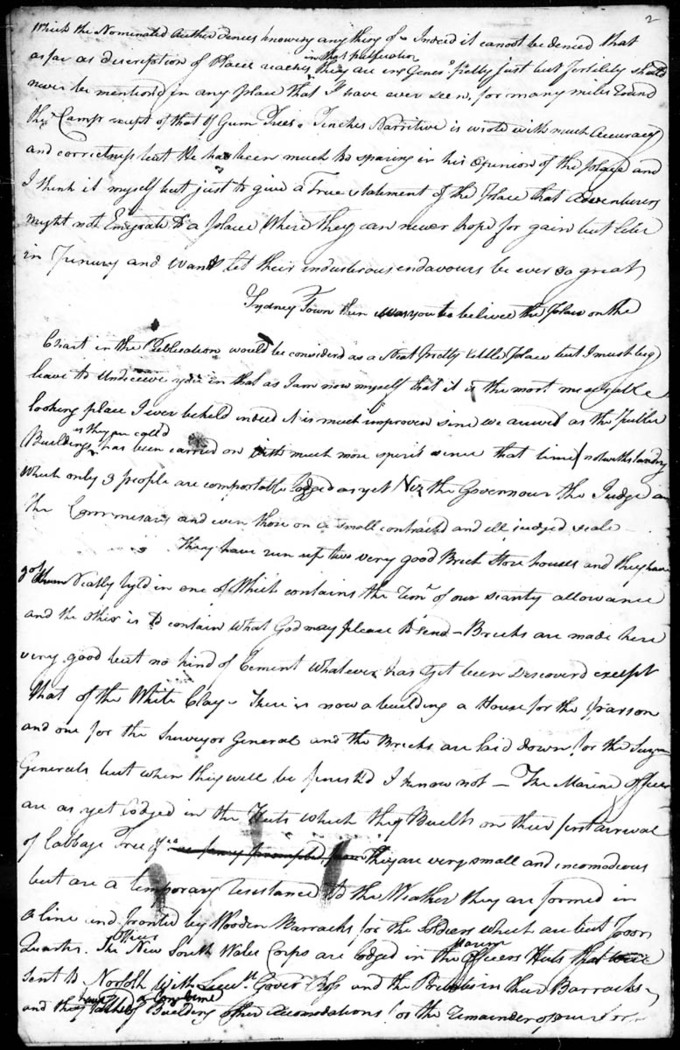 2
Which the Nominated Author denies knowing any thing of - Indeed it cannot be denied that
in that publication
as far as discription of Place reaches they are in Genel. pretty just but fertility should
never be mentiond in any place that I have ever seen, for many miles Round
this Camp except of that of Gum Trees - Tenches Narritive is wrote with much Accuracy
and correctness but He has been much to sparing in his Opinion of the place and
I think it myself but just to give a True statement of the Place that Adventurers
might not Emigrate to a place Where they can never hope for gain but live
in Penury and Want let their industerous endavours be ever so great
Sydney Town then was you to believe the place on the
Chart in the Publication would be considerd as a Neat pretty settled place but I must beg
leave to Undeceive you in that as I am now myself that it is the most miserable
looking place I ever beheld indeed it is much improven sinse we arrived as the Publick
as they are call'd
Buildings has been carried on with much more spirit sence that time notwithstanding
Which only 3 people are comfortable lodged as yet Viz the Governour the Judge an
The Commissary and even those on a small contracted and ill judged scale -
They have run up two very good Brick Store houses and they have
got them Neatly tyl'd in one of Which contains the Remr. of our scanty allowance
and the other is to contain what God may please to send - Bricks are made here
very good but no kind of Cement Whatever has yet been Discoverd except
that of the White Clay - There is now a building a House for the parson
and one for the Surveyor General and the Bricks are laid down for the Surgn
Generals but when they will be finish'd I know not - The Marine Officers
are as yet lodged in the Huts which they Built on their first arrival
of Cabbage Tree they are very small and incomodious
but are a temporary resistance to the Weather they are formed in
a line and fronted by Wooden Barracks for the Soldiers which are but poor
Quarters. The Officers New South Wales Corps are lodged in the Marine Officers Huts that were
sent to Norfolk With Lieut. Govr. Ross and the Privates in their Barracks -
and they have Building other Accomodations for the Remainder of our